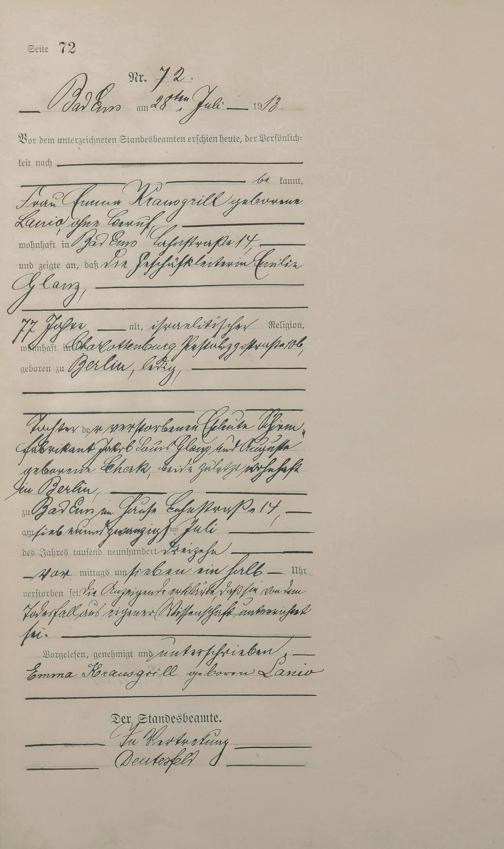 Seite 72
Nr. 72.
Bad Ems am 28ten Juli 1913
Vor dem unterzeichneten Standesbeamten erschien heute, der Persönlich-
keit nach
be kannt,
Frau Emma Kransgrill geborene
Lanio, ohne Beruf,
wohnhaft in Bad Ems Lahnstraße 14,
und zeigte an, daß die Geschäftsleiterin Emilie
Glanz,
77 Jahre alt, israelitischer Religion,
wohnhaft in Charlottenburg Pestalozzistraße
geboren zu Berlin, ledig,
Tochter der verstorbenen Eheleute
fabrikant Jakob Louis Glanz und Auguste
geborene beide zuletzt wohnhaft
in Berlin,
zu Bad Ems im Hause Lahnstraße 14,
am sieben und zwanzigsten Juli
des Jahres tausend neunhundert dreizehn
vor mittags um sieben ein halb Uhr
verstorben sei. Die Anzeigende erklärte, daß sie von dem
Todesfall aus eigener Wissenschaft unterrichtet
sei.
Vorgelesen, genehmigt und unterschrieben
Emma Kransgrill geboren Lanio
Der Standesbeamte.
In Vertretung